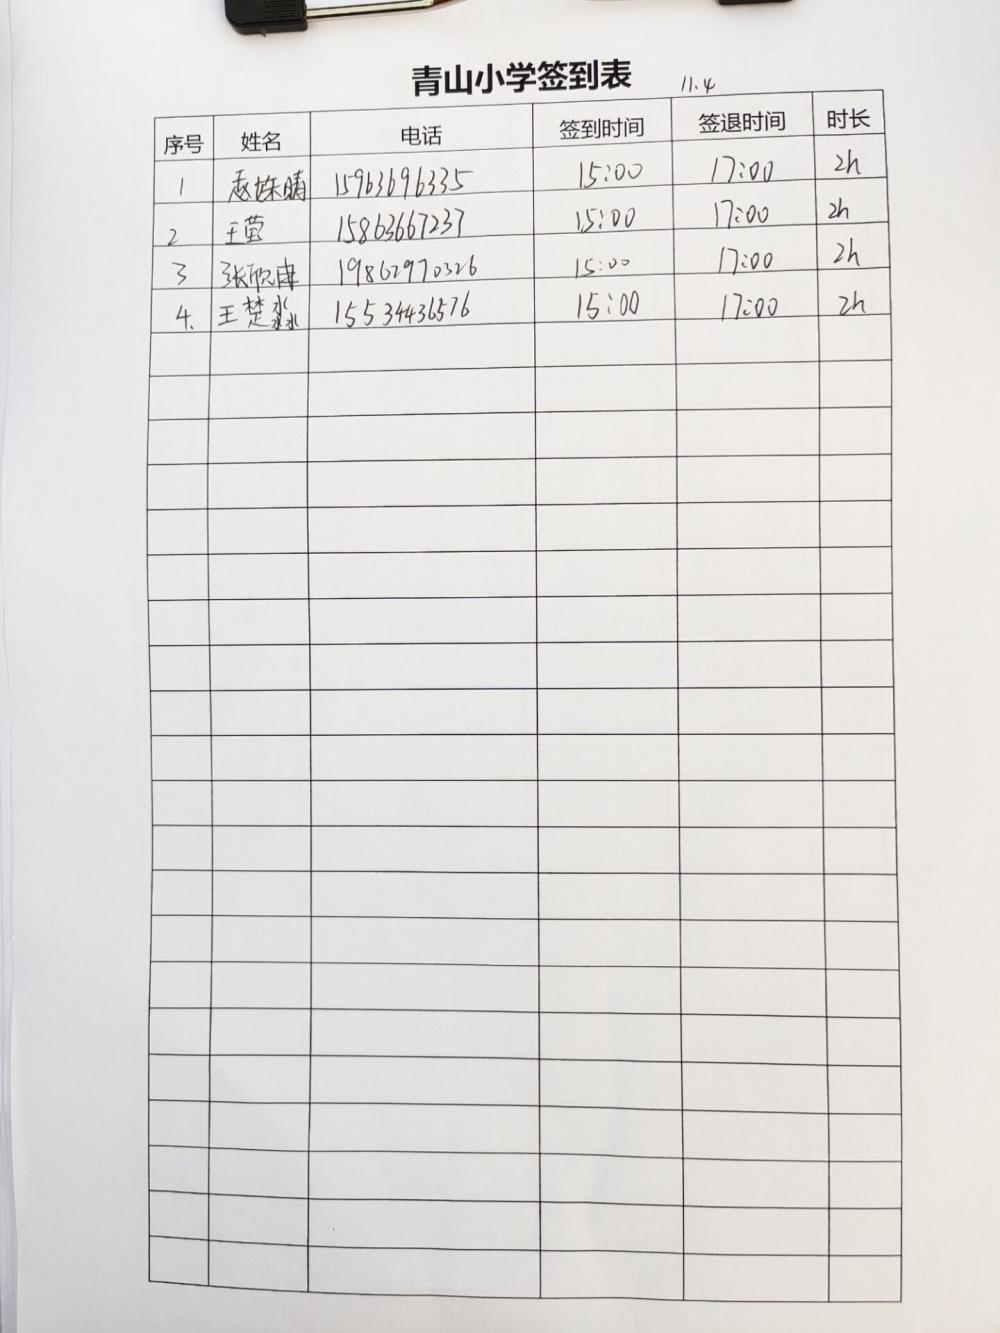 青山小学签到表 11.4
序号 姓名 电话 签到时间 签退时间 时长
1 15963696335 15:00 17:00 2h
2 王莹 15863667237 15:00 17:00 2h
3 19862970326 15:00 17:00 2h
4. 王楚淼 15534436576 15:00 17:00 2h